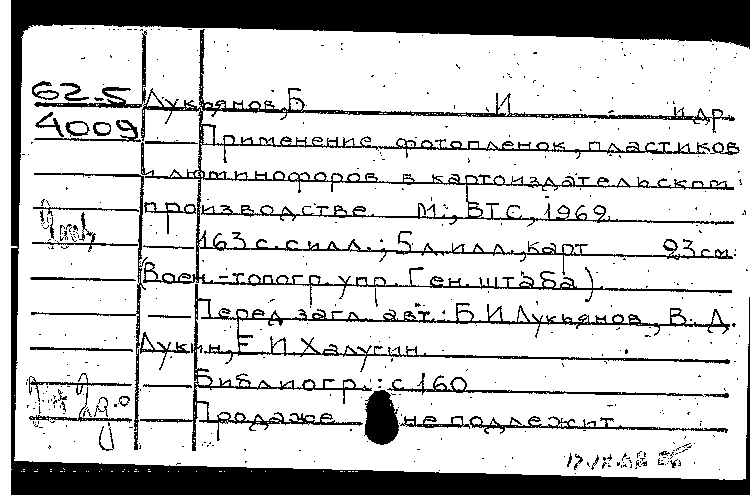 62-5
4009
Лукьянов, Б И и др.
Применение фотопленок, пластиков
и люминофоров в картоиздательском
производстве. М., ВТС, 1969.
163 с. с илл.; 5 л. илл., карт 23 см.
(Воен.-топогр. упр. Ген. штаба).
Перед загл. авт.: Б. И. Лукьянов, В. Д.
Лукин, Е. И. Халугин.
Библиогр.: с 160
Продаже не подлежит.